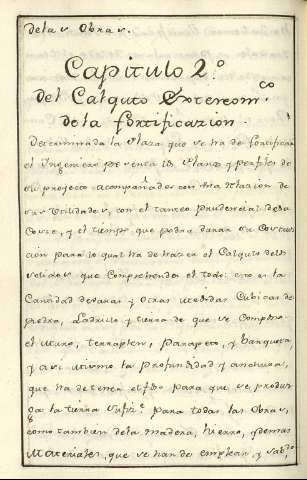 de las Obras.
Capitulo 2.º
del Calculo Extereom.co
de la fortificazion.
Determinada la Plaza que se ha de fortificar
el Ingeniero presenta los Planos y perfiles de
su projecto acompañados con una Relazion de
sus Utilidades, con el tanteo prudencial de su
Coste, y el tiempo que podra durar su Construc
cion para lo qual ha de hazer el Calculo de los
solidos que Comprehende el todo: esto es la
Cantidad de varas y otras medidas Cubicas de
piedra, Ladrillo y tierra de que se Compone
el muro, terraplen, parapeto, y banqueta,
y asi mismo la profundidad y anchura,
que ha de tener el foso para que se produz
ga la tierra sufiz.te para todas las Obras,
como tambien de la madera, hierro, y demas
Materiales, que se han de emplear, y